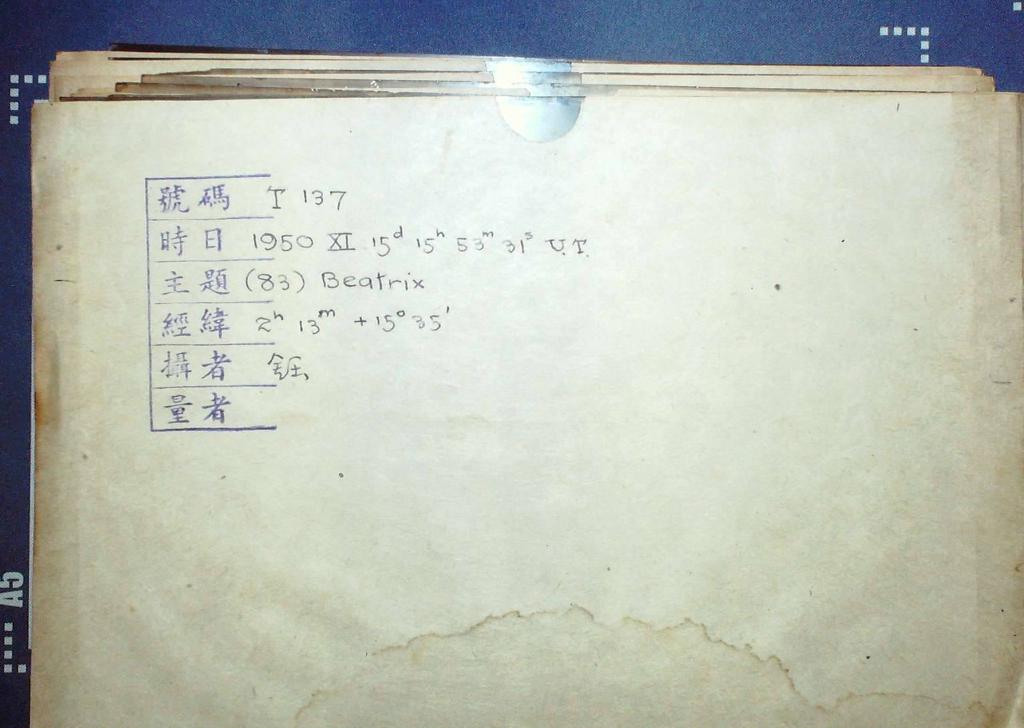 號碼 T 137
時日 1950 XI 15ᵈ 15ʰ 53ᵐ 31ˢ U.T.
主題 (83) Beatrix
經緯 2ʰ 13ᵐ +15° 35'
攝者 鈺
量者
A5